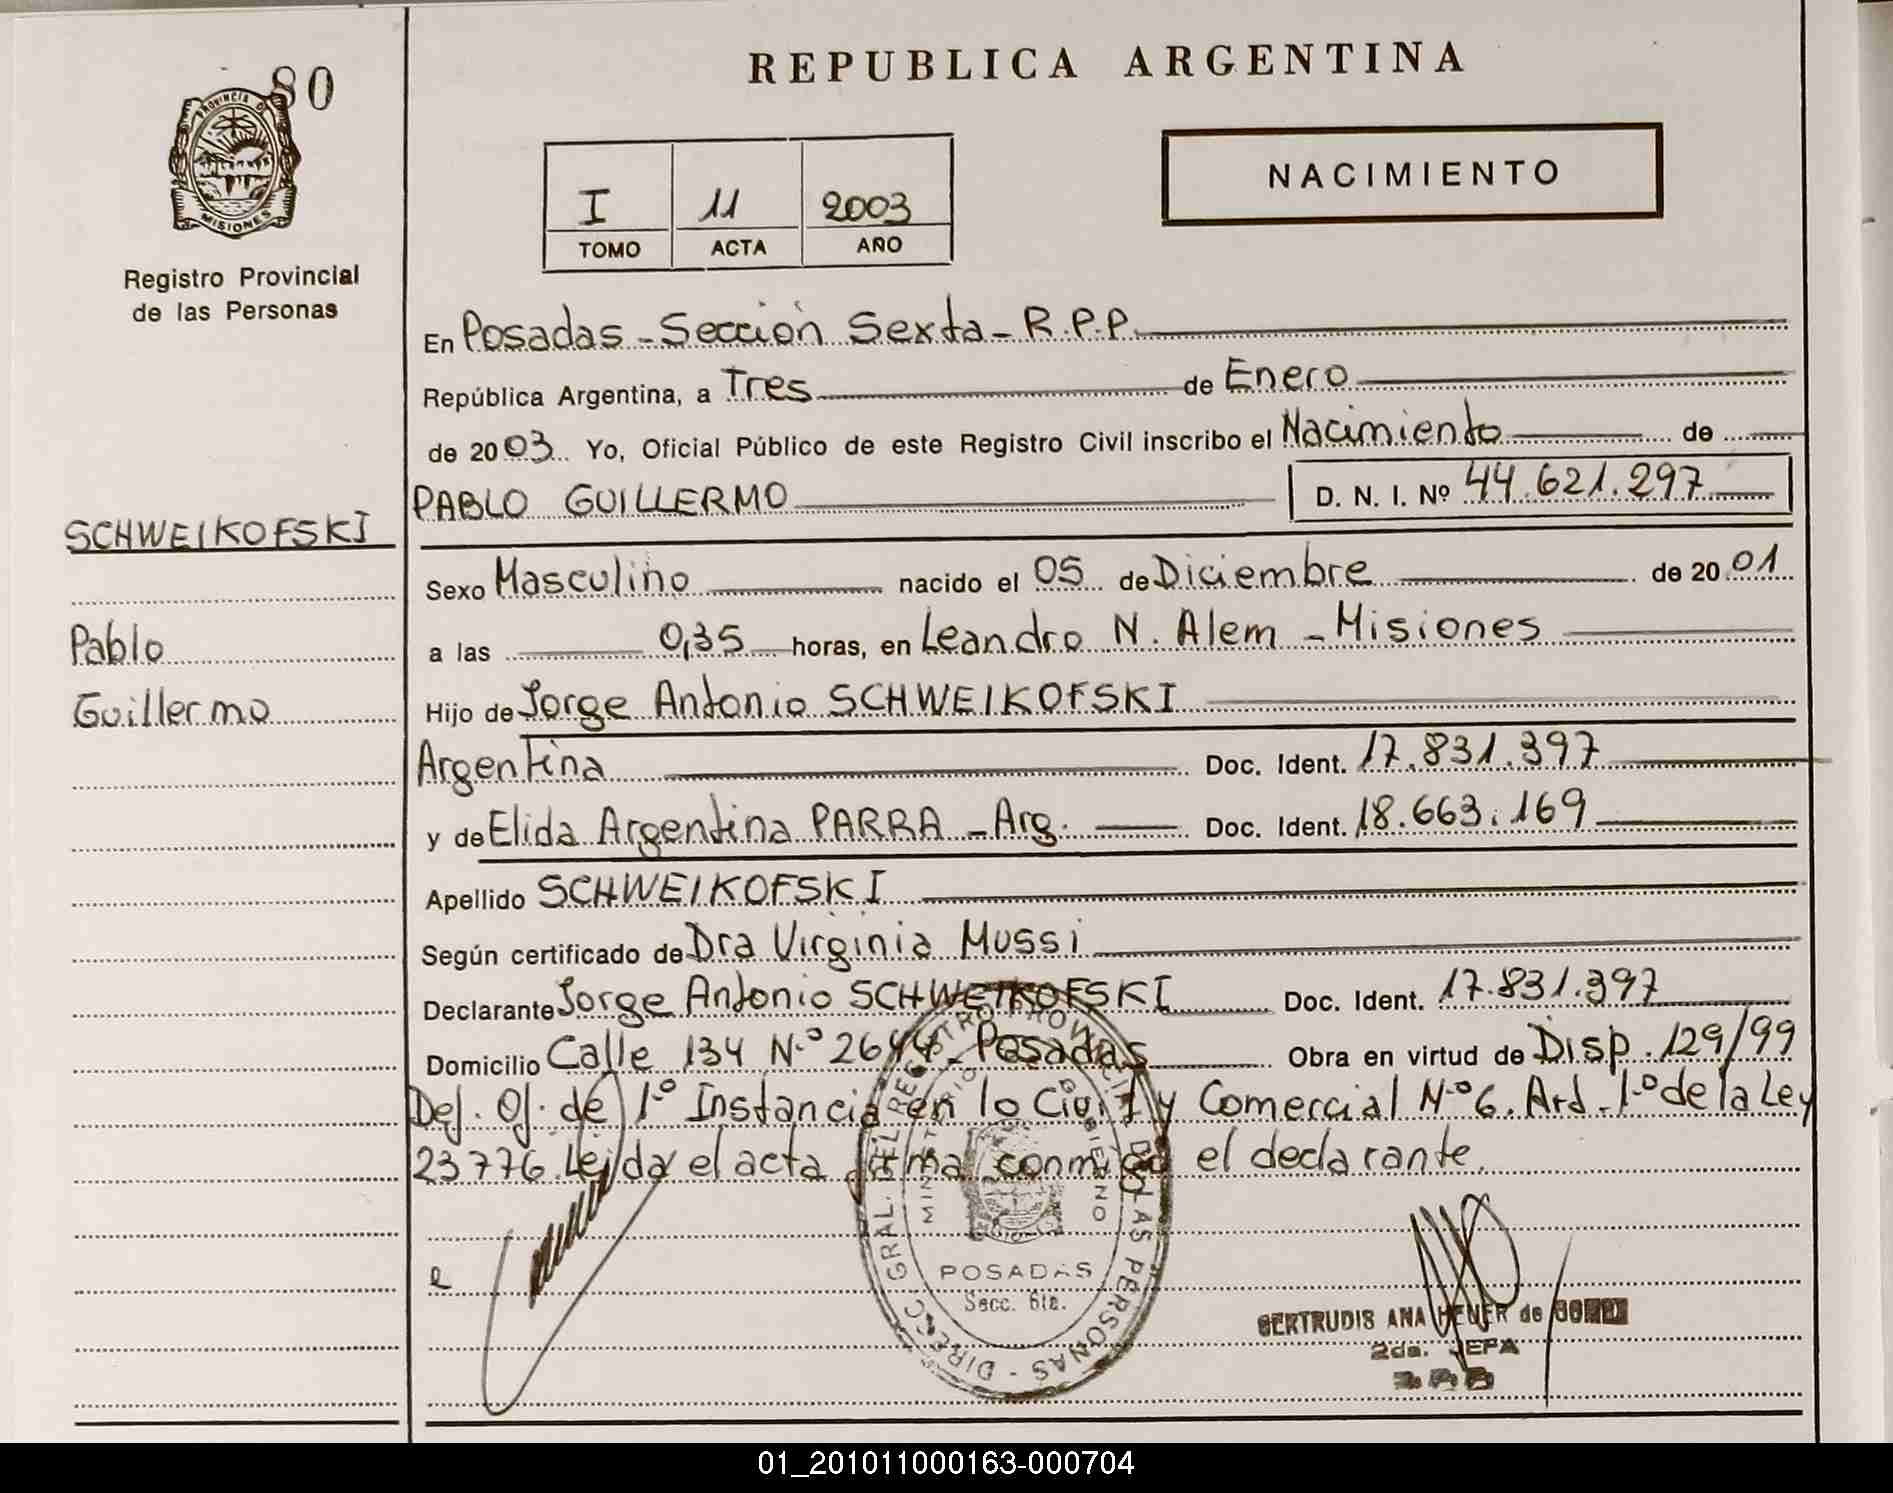 80
PROVINCIA DE
MISIONES
Registro Provincial
de las Personas
REPUBLICA ARGENTINA
I 11 2003
TOMO ACTA AÑO
NACIMIENTO
En Posadas - Sección Sexta - R.P.P.
República Argentina, a Tres de Enero
de 2003 Yo, Oficial Público de este Registro Civil inscribo el Nacimiento de
PABLO GUILLERMO D. N. I. Nº 44.621.297
SCHWEIKOFSKI
Sexo Masculino nacido el 05 de Diciembre de 2001
Pablo
a las 0,35 horas, en Leandro N. Alem - Misiones
Guillermo
Hijo de Jorge Antonio SCHWEIKOFSKI
Argentina Doc. Ident. 17.831.397
y de Elida Argentina PARRA - Arg. Doc. Ident. 18.663.169
Apellido SCHWEIKOFSKI
Según certificado de Dra Virginia Mussi
Declarante Jorge Antonio SCHWEIKOFSKI Doc. Ident. 17.831.397
Domicilio Calle 134 N.º 2644 - Posadas Obra en virtud de Disp. 129/99
Def. Of. de 1º Instancia en lo Civil y Comercial N.º 6. Art. 1.º de la Ley
23776. Leida el acta firma conmigo el declarante.
DIRECC. GRAL. DEL REGISTRO PROVINCIAL DE LAS PERSONAS
MINISTERIO DE GOBIERNO
POSADAS
Secc. 6ta.
GERTRUDIS ANA HENER de
2da. JEFA
01_201011000163-000704